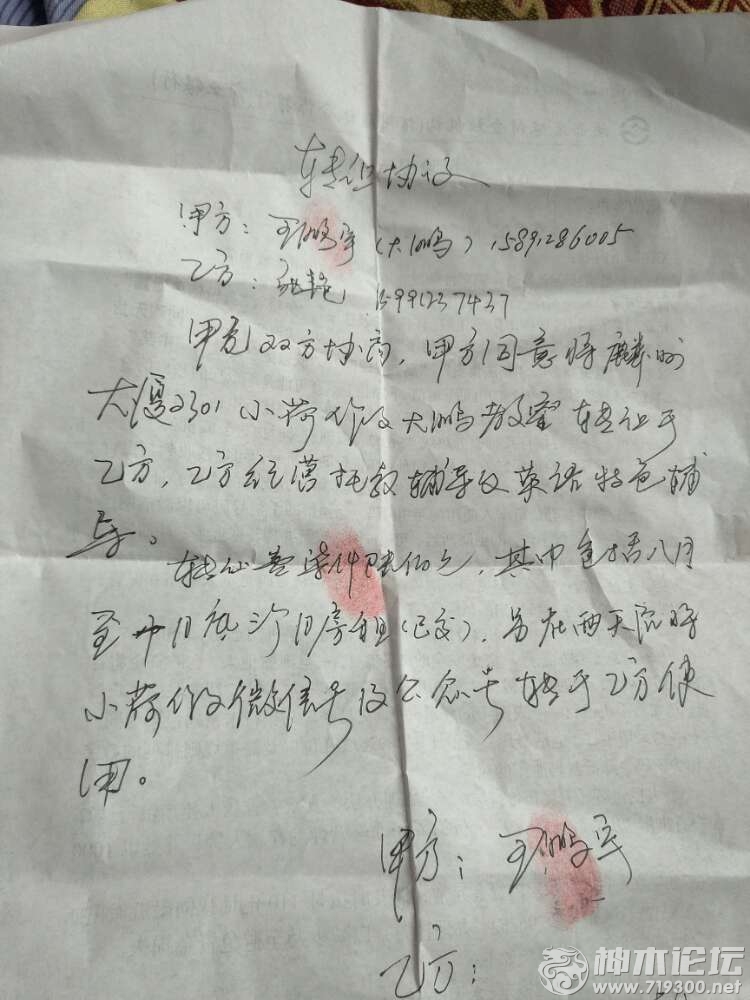 转让协议
甲方：王鹏军（大鹏）15891286005
乙方：张艳 15991237437
甲乙双方协商，甲方同意将麟州
大厦2301小荷作文大鹏教室转让于
乙方，乙方经营托教辅导及英语特色辅
导。
转让费 仟 佰元，其中包括八月
至 月底 月房租（已交），另在两天内将
小荷作文微信号及公众号转于乙方使
用。
甲方：王鹏军
乙方：
神木论坛
www.719300.net